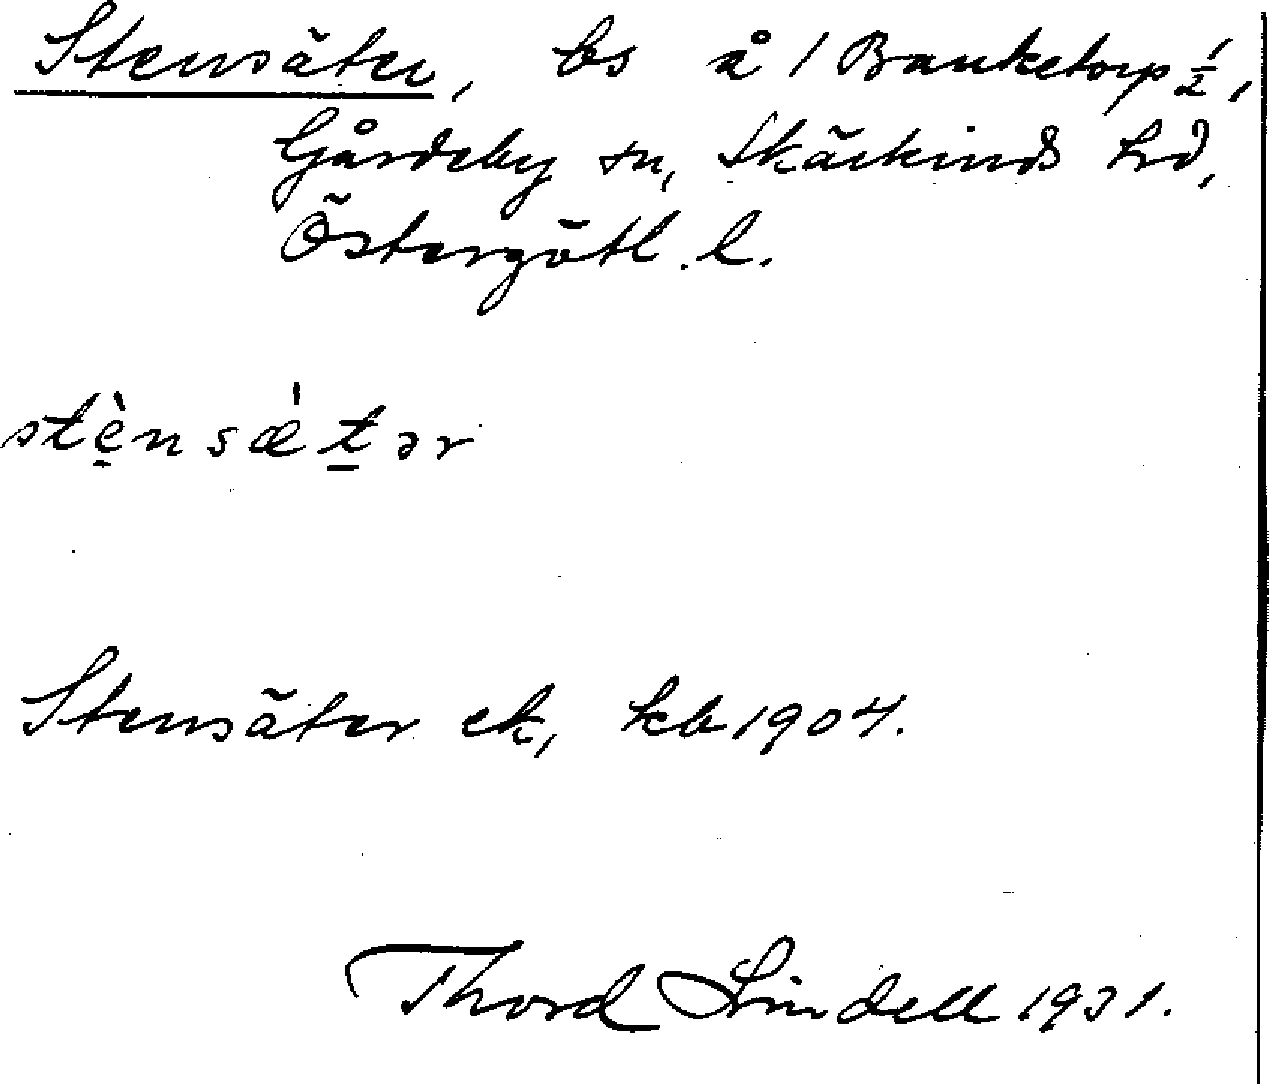 Stensäter, bs å / Banketorp ½,
Gårdeby sn, Skärkinds hd,
Östergötl. l.
stè̱nsǽt̲ər
Stensäter ek, kb 1904.
Thord Lindell 1931.